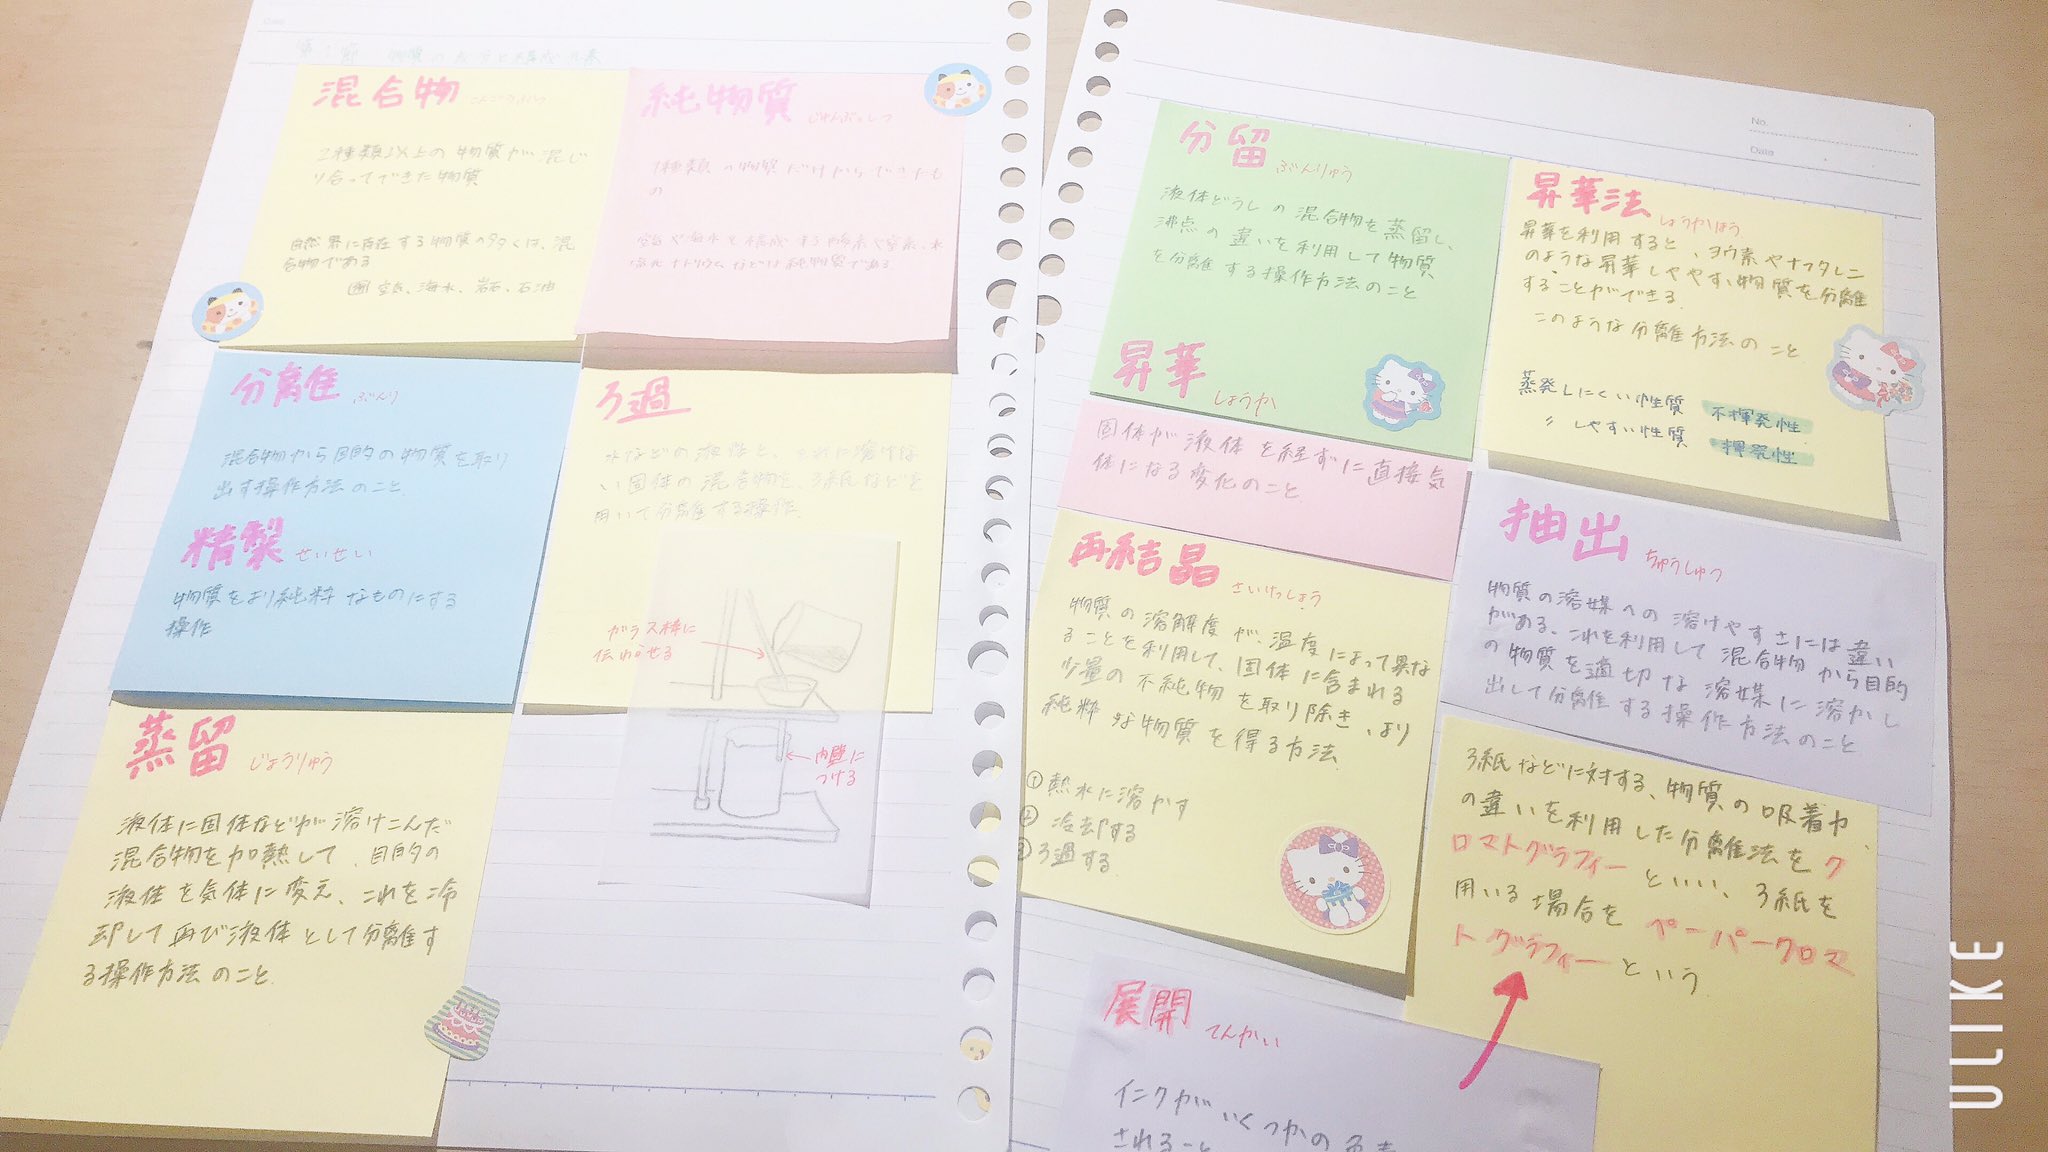 第1節 物質の成分と構成元素
混合物 こんごうぶつ
2種類以上の物質が混じ
り合ってできた物質
自然界に存在する物質の多くは、混
合物である
例 空気、海水、岩石、石油
純物質 じゅんぶっしつ
1種類の物質だけからできたも
の
空気や海水を構成する酸素や窒素、水、
塩化ナトリウムなどは純物質である
分離 ぶんり
混合物から目的の物質を取り
出す操作方法のこと
精製 せいせい
物質をより純粋なものにする
操作
ろ過
水などの液体と、それに溶けな
い固体の混合物を、ろ紙などを
用いて分離する操作
ガラス棒に
伝わらせる
内壁に
つける
蒸留 じょうりゅう
液体に固体などが溶けこんだ
混合物を加熱して、目的の
液体を気体に変え、これを冷
却して再び液体として分離す
る操作方法のこと
No.
Date
分留 ぶんりゅう
液体どうしの混合物を蒸留し、
沸点の違いを利用して物質
を分離する操作方法のこと
昇華 しょうか
固体が液体を経ずに直接気
体になる変化のこと
昇華法 しょうかほう
昇華を利用すると、ヨウ素やナフタレン
のような昇華しやすい物質を分離
することができる
このような分離方法のこと
蒸発しにくい性質 不揮発性
〃 しやすい性質 揮発性
再結晶 さいけっしょう
物質の溶解度が、温度によって異な
ることを利用して、固体に含まれる
少量の不純物を取り除き、より
純粋な物質を得る方法
① 熱水に溶かす
② 冷却する
③ ろ過する
抽出 ちゅうしゅつ
物質の溶媒への溶けやすさには違い
がある、これを利用して混合物から目的
の物質を適切な溶媒に溶かし
出して分離する操作方法のこと
ろ紙などに対する、物質の吸着力
の違いを利用した分離法をク
ロマトグラフィーといい、ろ紙を
用いる場合をペーパークロマ
トグラフィーという
展開 てんかい
インクがいくつかの
されること
ULIKE